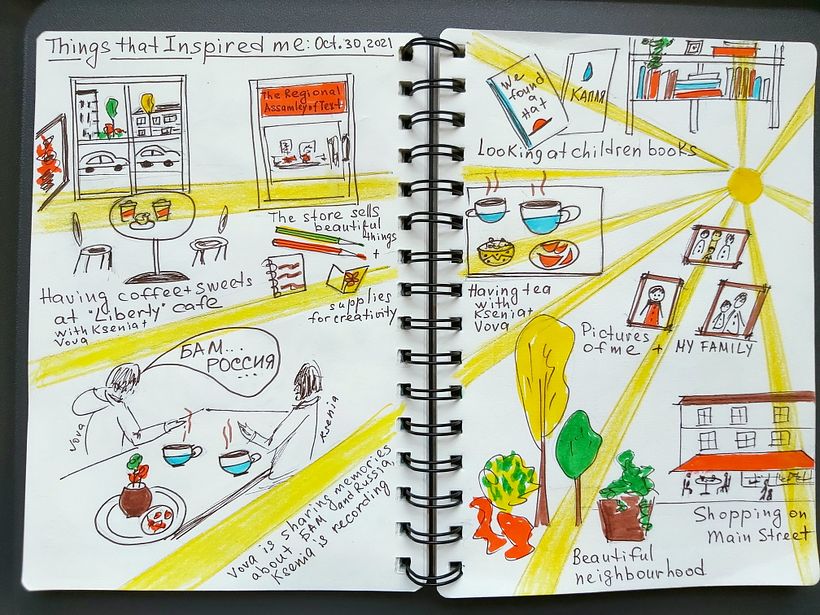 Things that Inspired me: Oct.30,2021
The Regional
Assamley of Text
The store sells
beautiful
things
+
supplies
for creativity
Having coffee + sweets
at "Liberty" cafe
with Ksenia +
Vova
БАМ...
РОССИЯ
...
Vova
Ksenia
Vova is sharing memories
about БАМ and Russia,
Ksenia is recording
we
found
a
Hat
КАПЛЯ
Looking at children books
Having tea
with
Ksenia +
Vova
Pictures
of me + MY FAMILY
Shopping on
Main Street
Beautiful
neighbourhood